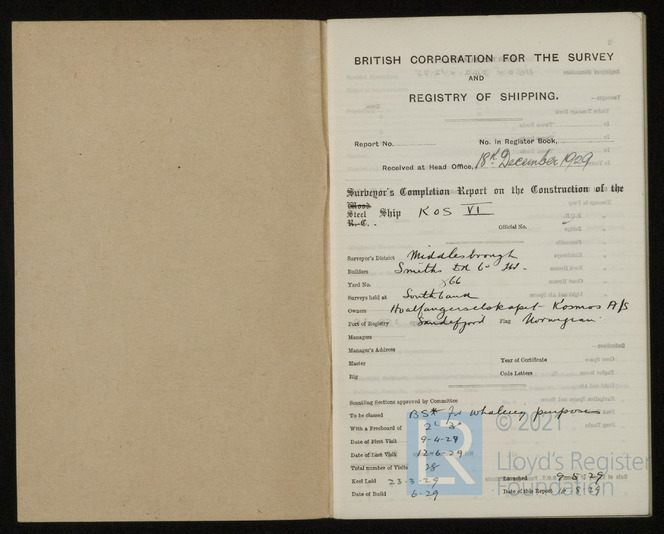 BRITISH CORPORATION FOR THE SURVEY
AND
REGISTRY OF SHIPPING.
Report No.
No. in Register Book,
Received at Head Office, 18th December 1929
Surveyor's Completion Report on the Construction of the
Wood
Steel Ship KOS VI
R.C.
Official No.
Surveyor's District Middlesbrough
Builders Smiths Dk Co Ltd.
Yard No. x66
Surveys held at Southbank
Owners Hvalfangerselskapet Kosmos A/S
Port of Registry Sandefjord Flag Norwegian
Managers
Manager's Address
Master Year of Certificate
Rig Code Letters
Scantling Sections approved by Committee
To be classed BS* for whaling purposes
With a Freeboard of 2' 3"
Date of First Visit 9-4-29
Date of Last Visit 12-6-29
Total number of Visits 28
Keel Laid 23-3-29 Launched 9-5-29
Date of Build 6-29 Date of this Report 10-8-29
© 2021
LR
Lloyd's Register
Foundation